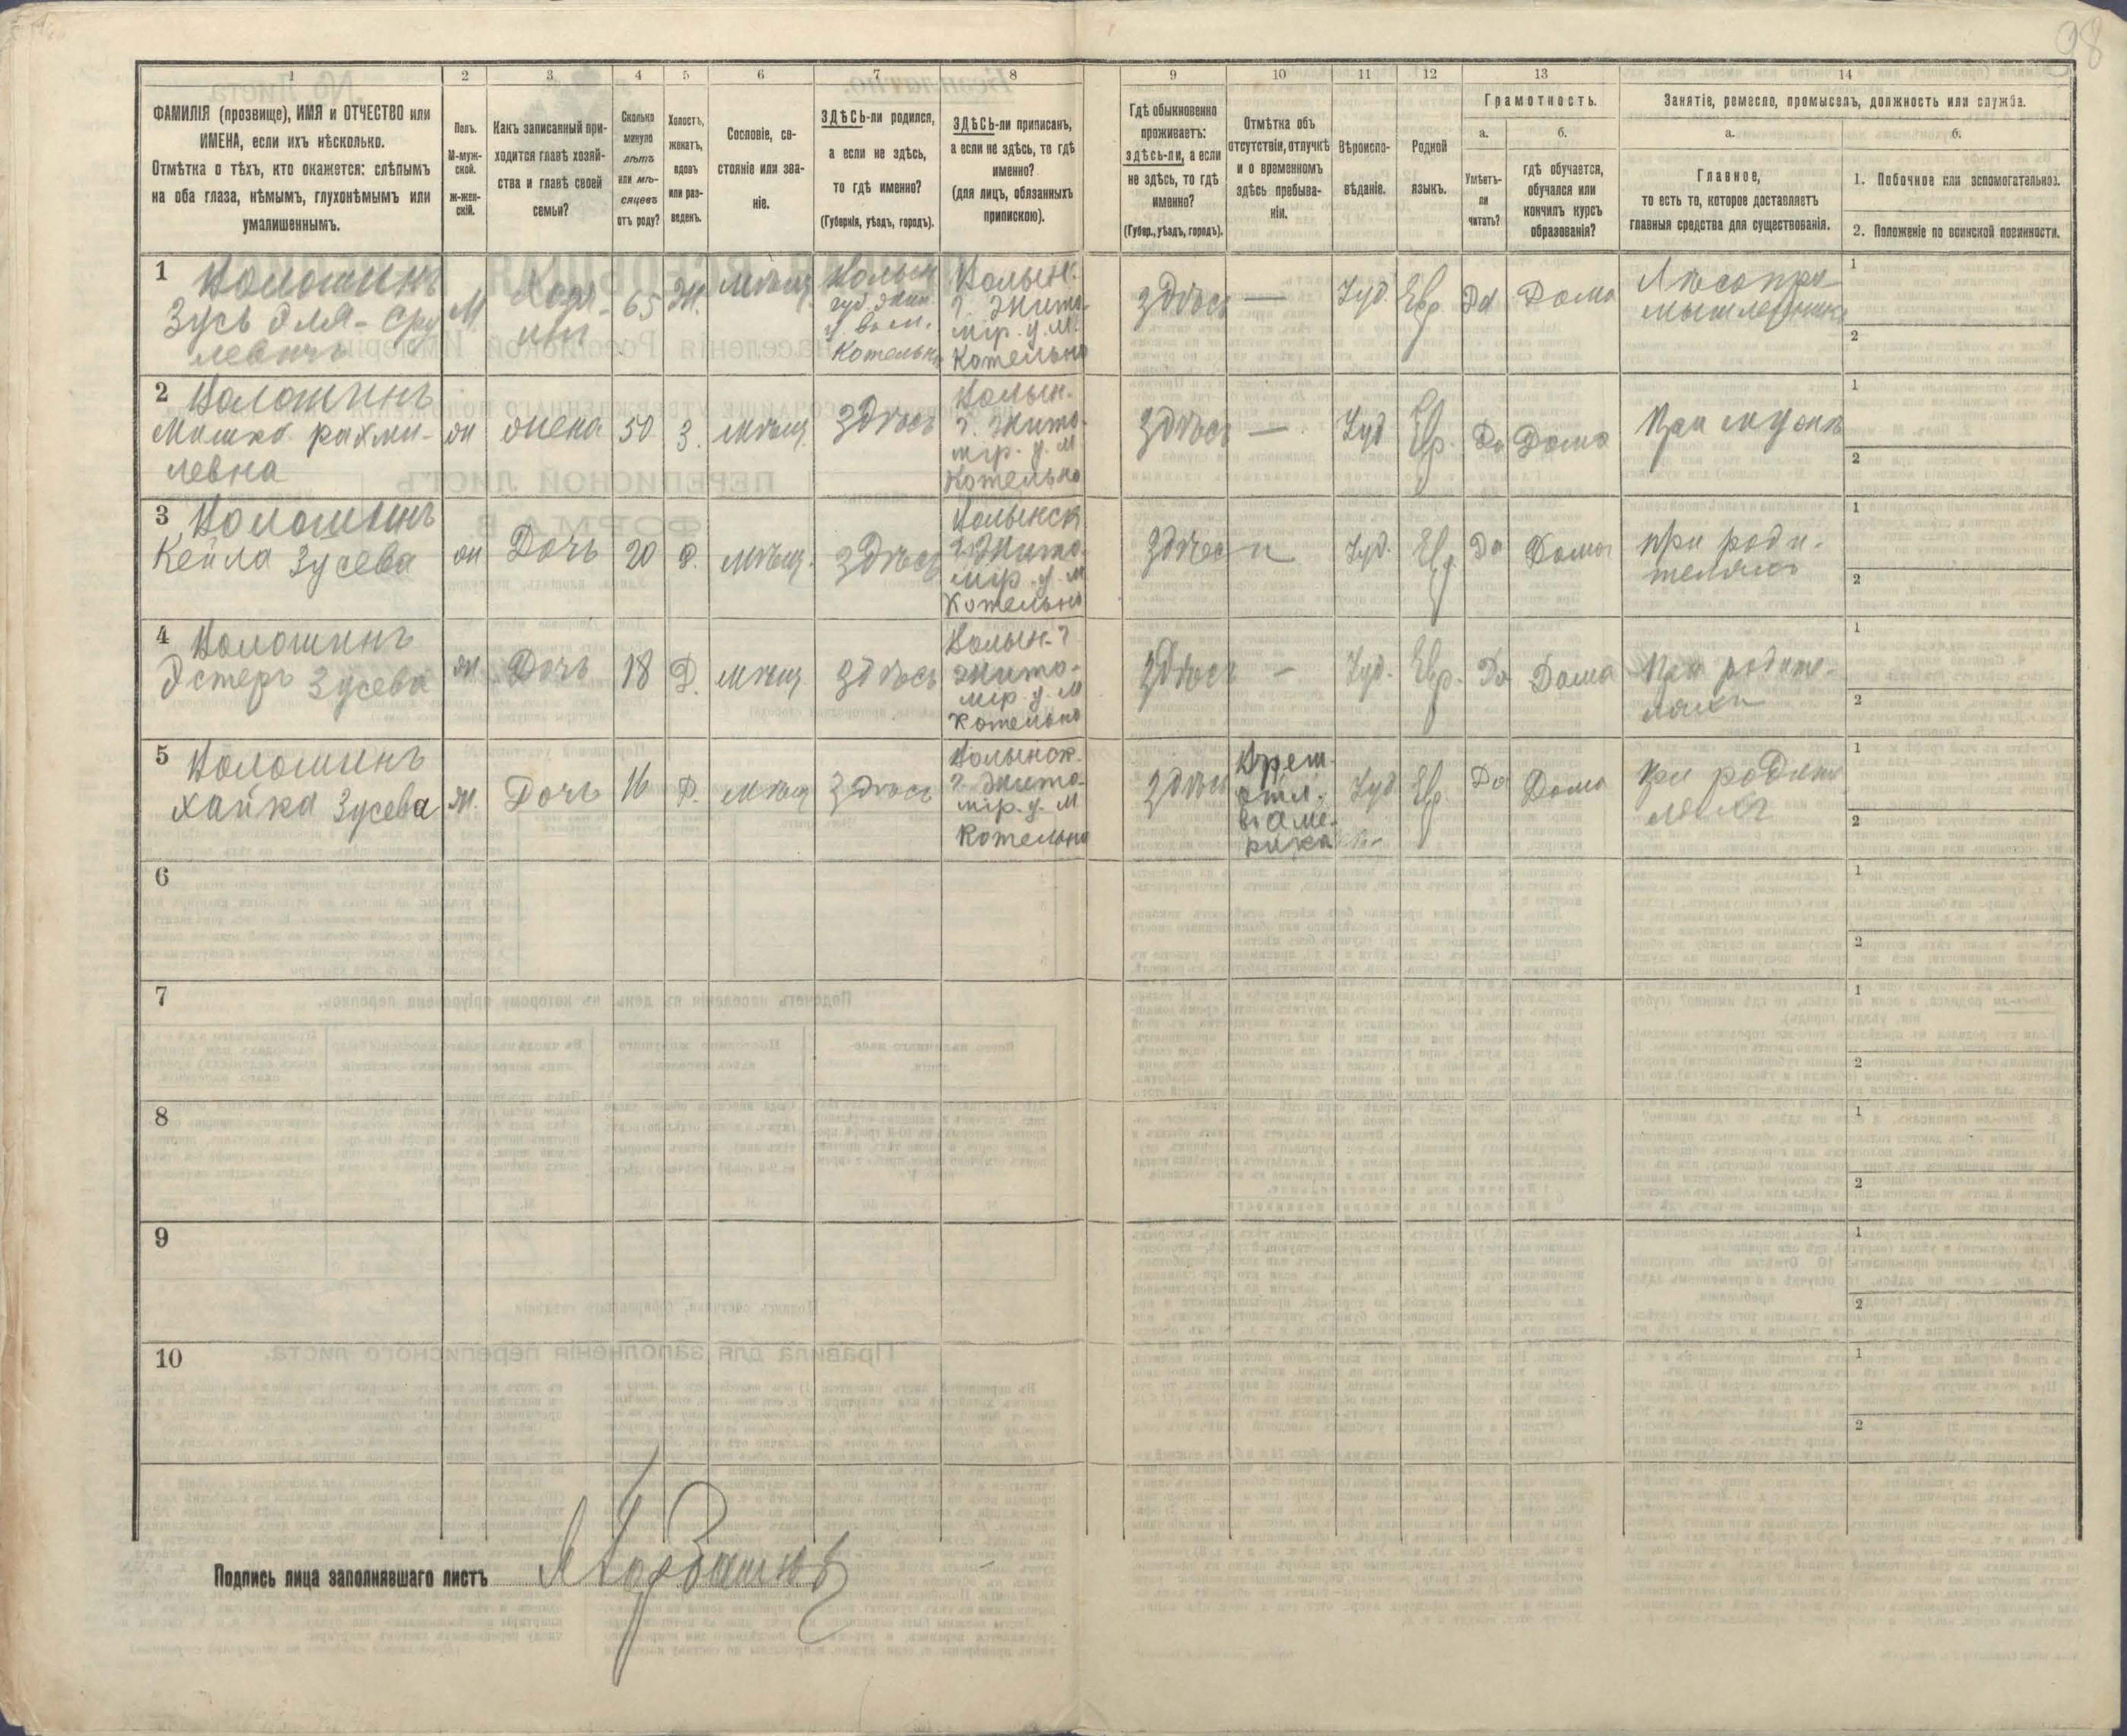 98
1
2
3
4
5
6
7
8
9
10
11
12
13
14
ФАМИЛІЯ (прозвище), ИМЯ и ОТЧЕСТВО или
ИМЕНА, если ихъ нѣсколько.
Отмѣтка о тѣхъ, кто окажется: слѣпымъ
на оба глаза, нѣмымъ, глухонѣмымъ или
умалишеннымъ.
Полъ.
М-муж-
ской.
ж-жен-
скій.
Какъ записанный при-
ходится главѣ хозяй-
ства и главѣ своей
семьи?
Сколько
минуло
лѣтъ
или мѣ-
сяцевъ
отъ роду?
Холостъ,
женатъ,
вдовъ
или раз-
веденъ.
Сословіе, со-
стояніе или зва-
ніе.
ЗДѢСЬ-ли родился,
а если не здѣсь,
то гдѣ именно?
(Губернія, уѣздъ, городъ).
ЗДѢСЬ-ли приписанъ,
а если не здѣсь, то гдѣ
именно?
(для лицъ, обязанныхъ
припискою).
Гдѣ обыкновенно
проживаетъ:
здѣсь-ли, а если
не здѣсь, то гдѣ
именно?
(Губер., уѣздъ, городъ).
Отмѣтка объ
отсутствіи, отлучкѣ
и о временномъ
здѣсь пребыва-
ніи.
Вѣроиспо-
вѣданіе.
Родной
языкъ.
Грамотность.
а.
Умѣетъ-
ли
читать?
б.
гдѣ обучается,
обучался или
кончилъ курсъ
образованія?
Занятіе, ремесло, промыселъ, должность или служба.
а.
Главное,
то есть то, которое доставляетъ
главныя средства для существованія.
б.
1. Побочное или вспомогательное.
2. Положеніе по воинской повинности.
1 Волошинъ
Зусь Эля-Сру
левичъ
М
65
Ж.
мѣщ.
Волын
губ. Жит
Котельня
Волын.
г. Жито-
мір. у. М.
Котельня
здѣсь
—
Іуд.
Евр
Да
Дома
Лѣсопро
мышленникъ
1
2
2 Волошинъ
левна
ж
жена
50
З.
мѣщ.
Здѣсь
Волын.
г. Жито-
мір. у. М
Котельня
Здѣсь
—
Іуд
Евр.
Да
Дома
При мужѣ
1
2
3 Волошинъ
Кейла Зусева
ж
Дочь
20
Д.
мѣщ.
Здѣсь
Волынск
г. Жито-
мір. у. М
Котельня
Здѣсь
Іуд.
Евр
Да
Дома
при роди-
теляхъ
1
2
4 Волошинъ
Эстеръ Зусева
ж
Дочь
18
Д.
мѣщ
здѣсь
Волын. г
Жито-
мір у. М
Котельня
Здѣсь
—
Іуд.
Евр.
Да
Дома
При родите-
ляхъ
1
2
5 Волошинъ
Хайка Зусева
ж.
Дочь
16
Д.
мѣщ
Здѣсь
Волынск.
г. Жито-
мір. у. М
Котельня
здѣсь
Врем.
отл.
въ Аме-
рика
Іуд
Евр.
Да
Дома
при родите
ляхъ
1
2
6
1
2
7
1
2
8
1
2
9
1
2
10
1
2
Подпись лица заполнявшаго листъ